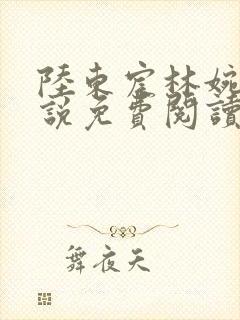 陸東宦林婉
說免費閱讀
舞夜天